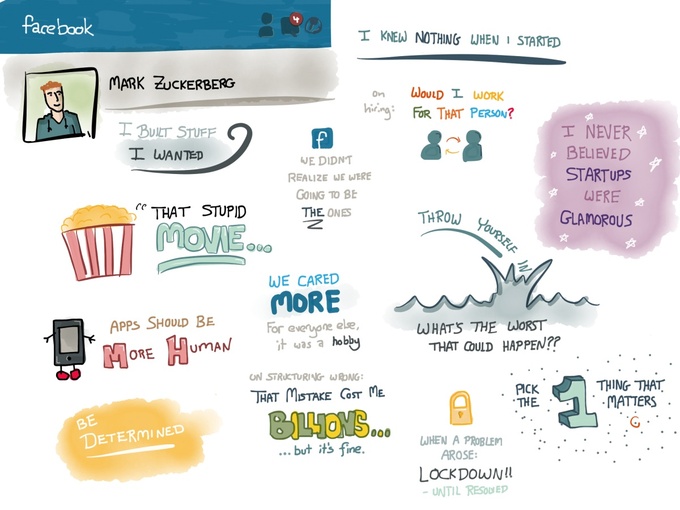 facebook
4
MARK ZUCKERBERG
I KNEW NOTHING WHEN I STARTED
I BUILT STUFF
I WANTED
on
hiring:
WOULD I WORK
FOR THAT PERSON?
f
WE DIDN'T
REALIZE WE WERE
GOING TO BE
THE ONES
I NEVER
BELIEVED
STARTUPS
WERE
GLAMOROUS
"THAT STUPID
MOVIE...
THROW YOURSELF IN
WHAT'S THE WORST
THAT COULD HAPPEN??
WE CARED
MORE
For everyone else,
it was a hobby
APPS SHOULD BE
MORE HUMAN
ON STRUCTURING WRONG:
THAT MISTAKE COST ME
BILLIONS...
...but it's fine.
BE
DETERMINED
WHEN A PROBLEM
AROSE:
LOCKDOWN!!
- UNTIL RESOLVED
PICK
THE
1
THING THAT
MATTERS